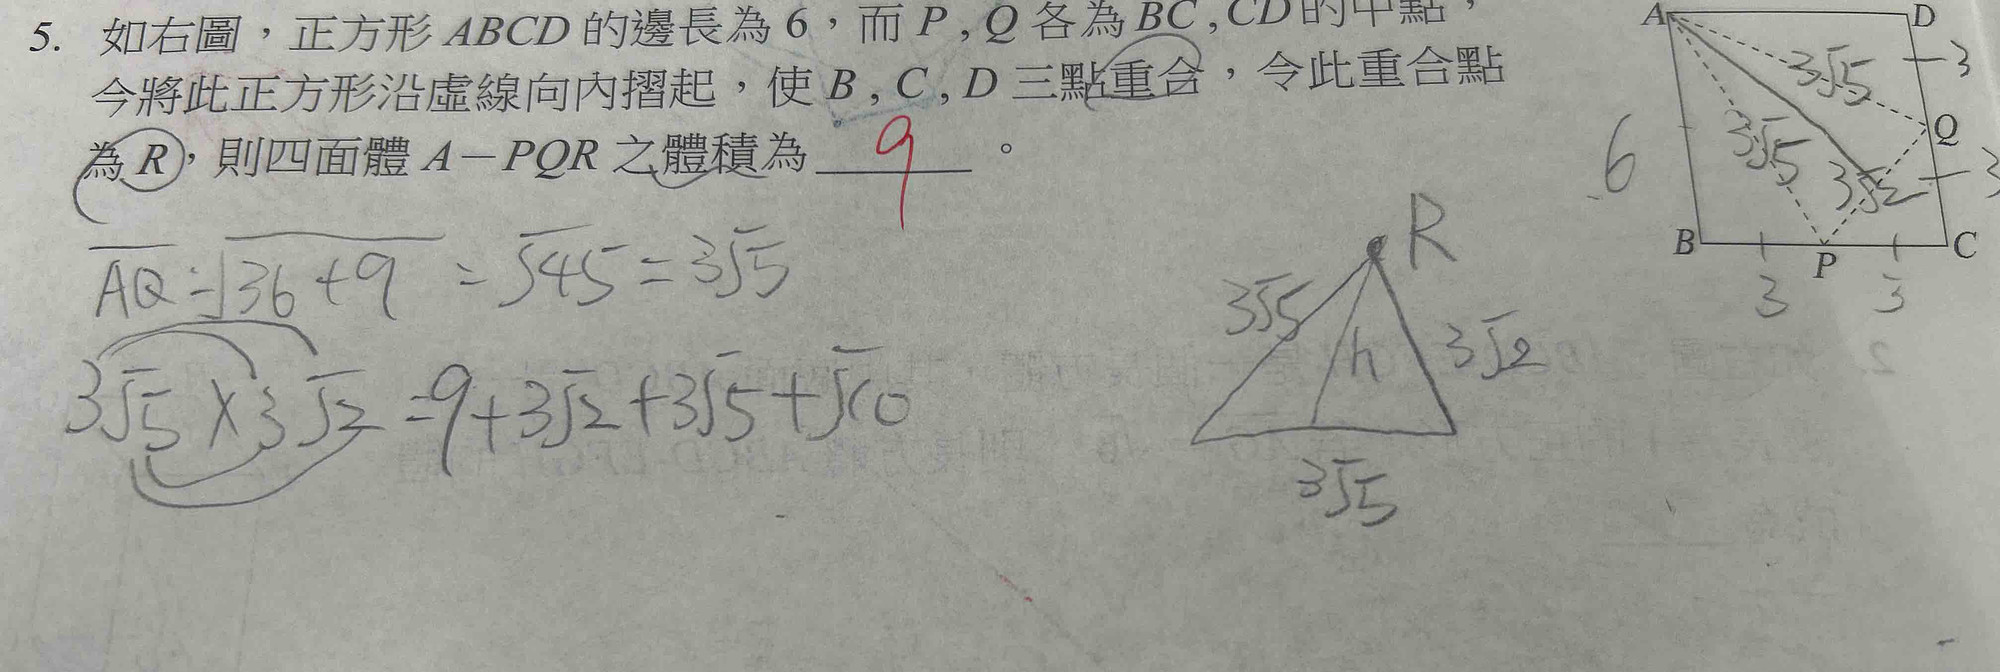 5. 如右圖，正方形 ABCD 的邊長為 6，而 P , Q 各為 BC , CD 的中點，
今將此正方形沿虛線向內摺起，使 B , C , D 三點重合，令此重合點
為 R，則四面體 A－PQR 之體積為 9 。
A D
3√5 3
Q
6 3√5 3√2 3
B P C
3 3
AQ = √36+9 = √45 = 3√5
3√5 × 3√2 = 9+3√2+3√5+√10
R
3√5 h 3√2
3√5